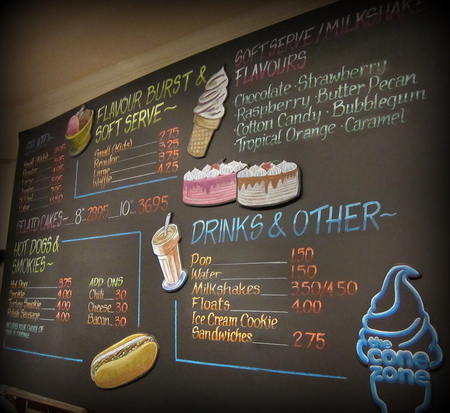 SOFT SERVE/MILKSHAKE
FLAVOURS
Chocolate · Strawberry
Raspberry · Butter Pecan
Cotton Candy · Bubblegum
Tropical Orange · Caramel
FLAVOUR BURST &
SOFT SERVE~
Small (Kids) 2.75
Regular 3.25
Large
Waffle 4.25
GELATO
GELATO CAKES~ 8" 28.95 10" 36.95
HOT DOGS &
SMOKIES~
Hot Dog 3.25
Smokie 4.00
Turkey Smokie 4.00
Polish Sausage 4.00
ADD ONS
Chili .30
Cheese .30
Bacon .30
DRINKS & OTHER~
Pop 1.50
Water 1.50
Milkshakes 3.50/4.50
Floats 4.00
Ice Cream Cookie
Sandwiches 2.75
the
cone
zone